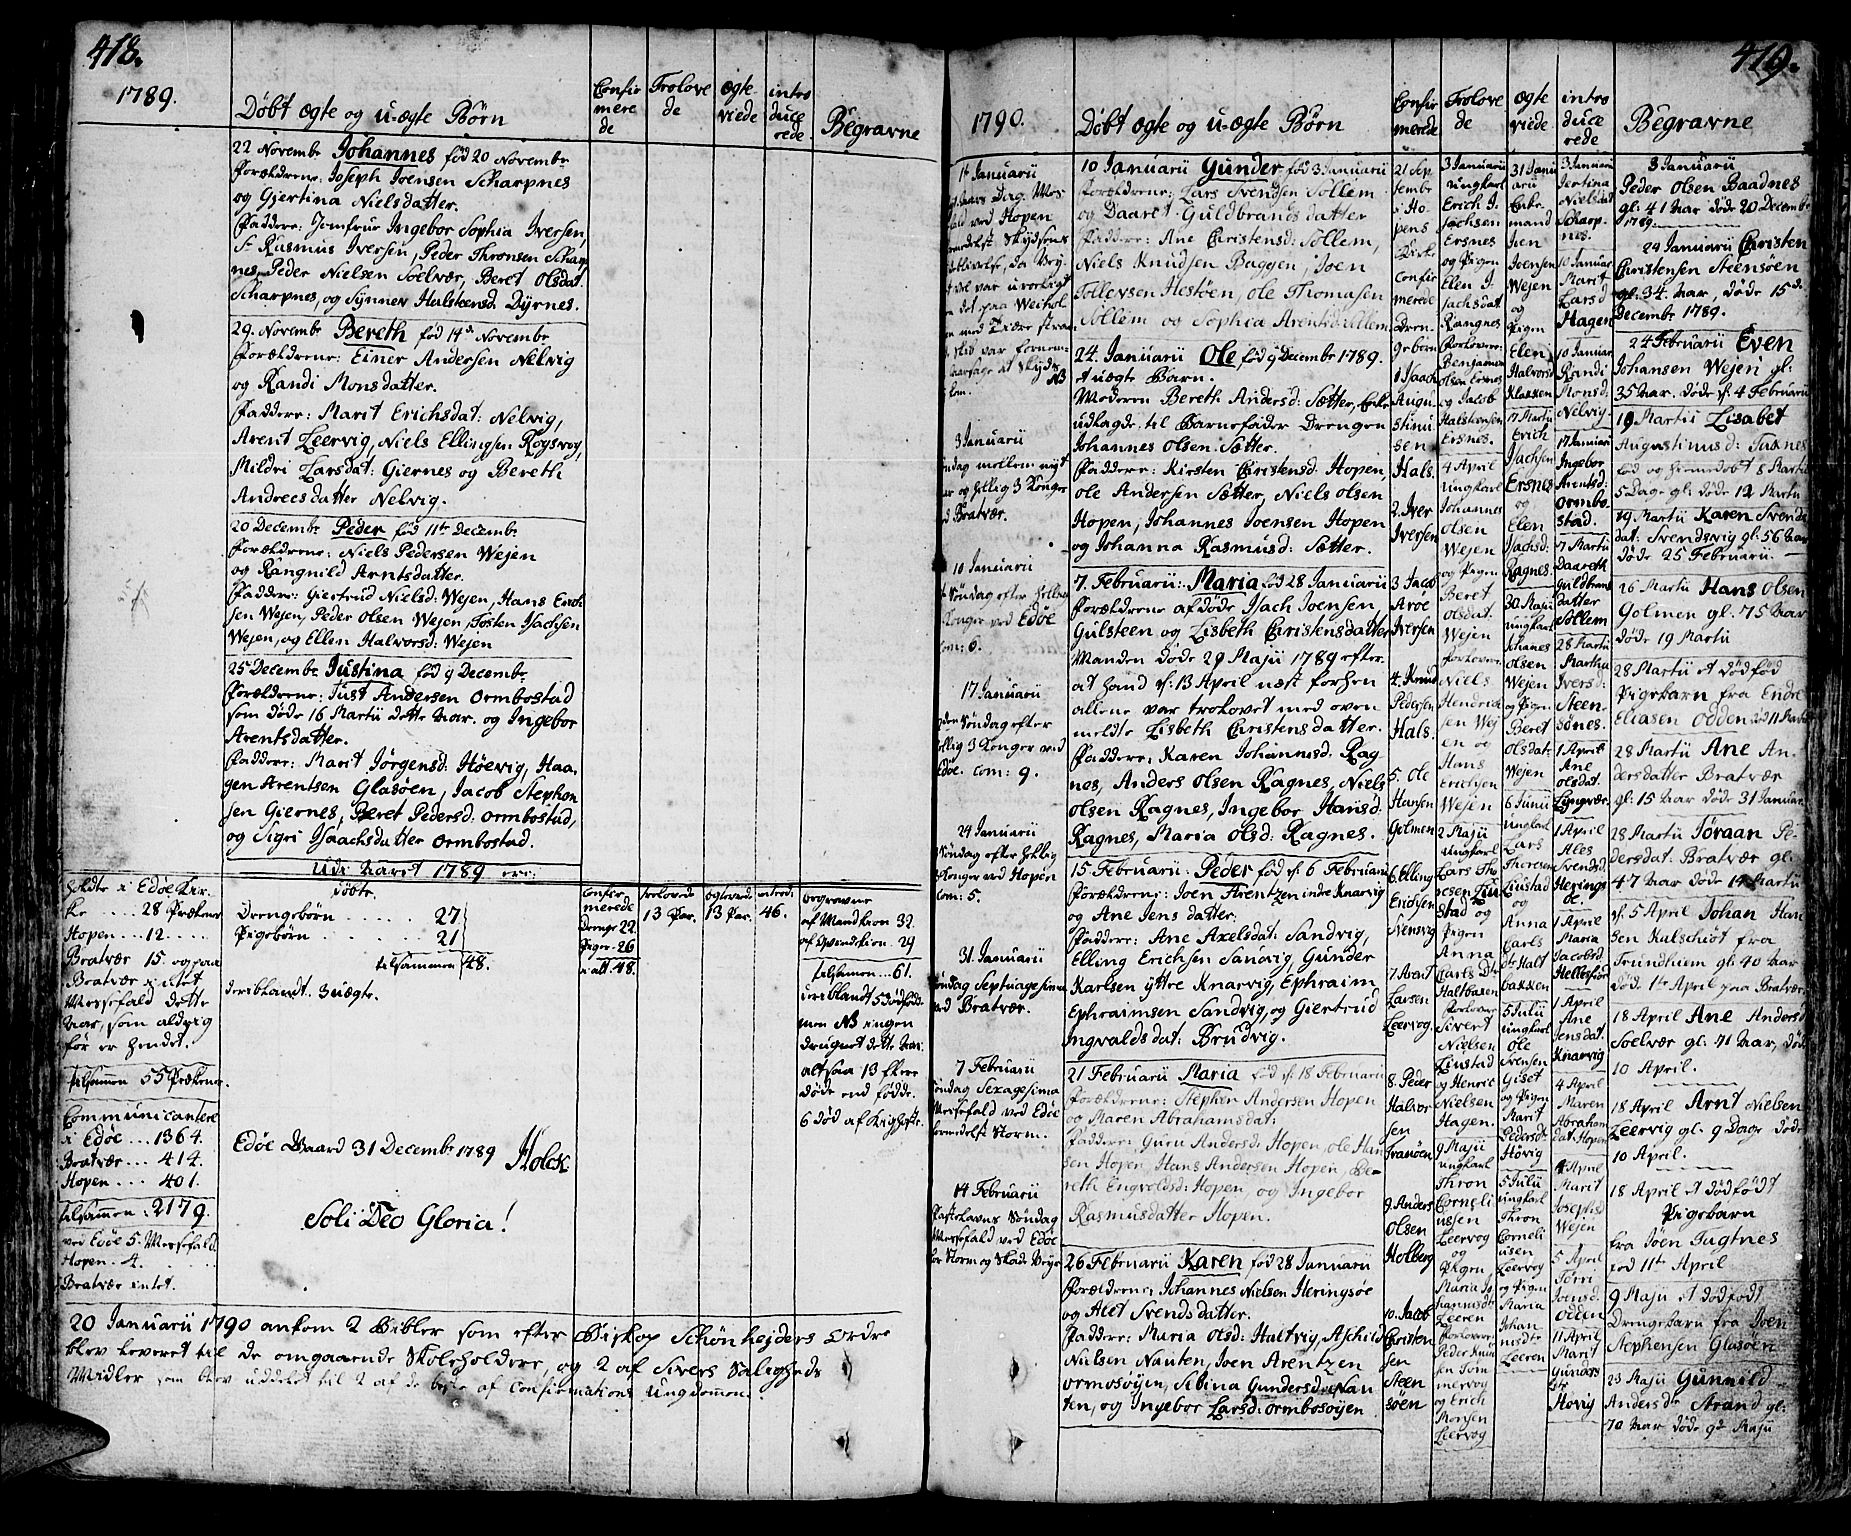 418.
1789.
Døbt ægte og u-ægte Børn
Confir
mere
de
Trolove
de
Ægte
viede
intro
duce
rede
Begravne
22 Novembr Johannes fød 20 Novembr
Forældrene: Joseph Joensen Scharpnes
og Gjertina Nielsdatter.
Faddere: Jomfrue Ingebor Sophia Iversen,
Rasmus Iversen, Peder Thronsen Scharp
nes, Peder Nielsen Soelvær, Beret Olsdat.
Scharpnes, og Synnev Halsteensd. Dyrnes.
29. Novembr Bereth fød 14de Novembr
Forældrene: Einer Andersen Nelvig
og Randi Monsdatter.
Faddere: Marit Erichsdat: Nelvig,
Arent Leervig, Niels Ellingsen Rogsvog,
Mildri Larsdat: Giernes og Bereth
Andreesdatter Nelvig.
20 Decembr Peder fød 11te Decembr
Forældrene: Niels Pedersen Wejen
og Rangnild Arntsdatter.
Faddere: Giertrud Nielsd: Wejen, Hans Erich
sen Wejen, Peder Olsen Wejen, Tosten Isachsen
Wejen, og Ellen Halvorsd: Wejen
25 Decembr Justina fød 9 Decembr
Forældrene: Just Andersen Ormbostad
som døde 16 Martii dette Aar. og Ingebor
Arentsdatter.
Faddere: Marit Jørgensd: Høevig, Haa-
gen Arentsen Glasøen, Jacob Stephen
sen Giernes, Beret Pedersd: Ormbostad,
og Sigri Isaachsdatter Ormbostad.
Udi Aaret 1789 ere:
holdte i Edøe Kir-
ke .... 28 Prækener
Hopen ... 12 ....
Bratvær 15. og paa
Bratvær intet
Messefald dette
Aar, som aldrig
før er hendet.
tilsammen 55 Prækener.
Communicantere
i Edøe ... 1364.
Bratvær ... 414.
Hopen ... 401.
tilsammen . 2179.
ved Edøe 5. Messefald
Hopen . 4.
Bratvær intet.
døbte
Drengebørn ..... 27
Pigebørn ..... 21
tilsammen 48.
deriblandt . 3 uægte.
Confir
merede
Drenge 22
Piger. 26
i alt. 48.
trolovede
13 Par.
ægteviede
13 Par.
introd:
46.
begravne
af Mandkiøn 32.
af Qvindekiøn. 29
tilsamen ... 61.
iblandt 5 dødfødde
men NB ingen
druknet dette Aar.
altsaa 13 flere
døde end fødde.
Edøe Gaard 31 Decembr 1789 Holck
Soli Deo Gloria!
20 Januarii 1790 ankom 2 Bibler som efter Biskop Schønhejders Ordre
blev leveret til de omgaaende Skoleholdere, og 2 af Sivers Saligheds
Midler som blev uddelet til 2 af de beste af Confirmations Ungdommen.
419.
1790.
Døbt ægte og u-ægte Børn
Confir
merede
Trolove
de
Ægte
viede
intro
duce
rede
Begravne
1te Januarii
3 Januarii
10 Januarii
Edøe
Com: 6.
17 Januarii
Søndag efter
hellig 3 Konger ved
Edøe. Com: 9.
24 Januarii
Søndag efter hellig
3 Konger ved Hopen
Com: 5.
31 Januarii
Søndag Septuagesima
ved Bratvær.
7 Februarii
Søndag Sexagesima
Messefald ved Edøe
formedelst Storm.
14 Februarii
Fastelavns Søndag
Messefald ved Edøe
10 Januarii Gunder fød 3 Januarii
Forældrene: Lars Svendsen Sollem
og Daaret Guldbrandsdatter
Faddere: Ane Christensd: Sollem,
Niels Knudsen Baggen, Joen
Tollevsen Hestøen, Ole Thomasen
Sollem og Sophia Arentsd: Sollem
24. Januarii Ole, fød 9 Decembr 1789.
et uægte Barn.
Moderen Bereth Andersd: Sætter, Enke
udlagde til Barnefader Drengen
Johannes Olsen Sætter.
Faddere: Kirsten Christensd: Hopen,
Ole Andersen Sætter, Niels Olsen
Hopen, Johannes Joensen Hopen
og Johanna Rasmusd: Sætter.
7. Februarii: Maria fød 28 Januarii
Forældrene afdøde Isach Joensen,
Gulsteen og Lisbeth Christensdatter
Manden døde 29 Maji 1789 efter
at hand d: 13 April næst forhen
allene var trolovet med oven
meldte Lisbeth Christensdatter.
Faddere: Karen Johannisd: Rag
nes, Anders Olsen Ragnes, Niels
Olsen Ragnes, Ingebor Hansd:
Ragnes, Maria Olsd: Ragnes.
15. Februarii: Peder fød d: 6 Februarii
Forældrene: Joen Arentzen indre Knarvig
og Ane Jensdatter.
Faddere: Ane Axelsdat: Sandvig,
Elling Erichsen Sandvig, Gunder
Karlsen ýttre Knarvig, Ephraim
Ephraimsen Sandvig, og Giertrud
Ingvaldsdat: Brudvig.
21 Februarii Maria fød d: 18 Februarii
Forældrene: Stephen Andersen Hopen
og Maren Abrahamsdat:
Faddere: Guru Andersd: Hopen, Ole Han
sen Hopen, Hans Andersen Hopen, Be-
reth Engvoldsd: Hopen, og Ingebor
Rasmusdatter Hopen.
26 Februarii Karen fød 28 Januarii
Forældrene: Johannes Nielsen Heringsøe
og Alet Svendsdatter.
Faddere: Maria Olsd: Haltvig, Aschild
Nielsen Nauten, Joen Arentzen
Ormosøyen, Sibina Gundersd: Nau
ten, og Ingebor Larsd: Ormbosøyen
21 Sep
tembr
i Ho-
pens
Kirke
Confir
merede
Dren-
gebørn
1 Isaach
Augu
stinu
sen
Hals.
2. Iver
Iversen
3 Jacob
Arøe
Iversen
4. Knud
Pedersen
Hals.
5. Ole
Hansen
Golmen
6 Elling
Erichsen
Nensvig
7 Arent
Larsen
Leervog.
8. Peder
Halvor
sen
Tranøen
9 Anders
Olsen
Holberg
10. Jacob
Christen
sen
Steen
søen
3 Januarii
ungkarl
Erich I:
sachsen
Ersnes
og Pigen
Ellen I:
sachsdat.
Rangnes
Forlovere:
Benjamin
Olsen Ersnes
og Jacob
Halsteensen
Ersnes.
4 April
ungkarl
Johannes
Olsen
Wejen
og Pigen
Beret
Olsdat.
Wejen
Forlovere
Niels
Hendrich
sen Wej
en og
Hans
Erichsen
Wejen
2 Maji
ungkarl
Lars Th
og
Pigen
Anna
Carls Dtr
Haltbaken
Forlovere
Sivert
Nielsen
Liustad
og Henric
Nielsen
Hagen.
9 Maji
ungkarl
Thron
Corneli
ussen
Leervog
og
Pigen
Maria Jo
hannesdtr
Leeren
Forlovere
Peder Knu
og Erich
Monsen
Leervog
31 Janu
arii
Enke
mand
Joen
Joensen
Wejen
og
Pigen
Elen
Halvorsd
Klakken
7 Martii
Erich
Isachsen
Ersnes
og
Elen
Isachsd:
Ragnes
30 Maji
ungkarl
Johanes
Olsen
Wejen
og Pigen
Beret
Olsdat:
Wejen
6 Junii
ungkarl
Lars
Thoresen
Liustad
og
Anna
Carls
dtr Halt
bakken
5 Julii
ungkarl
Ole
Svensen
Giset
og Pigen
Marit
Pedersdt.
Høvig
5 Julii
ungkarl
Thron
Corneli
usen
Leervog
og Pigen
Maria
Johan
nesdtr
Leeren
3 Januarii
Jertina
Nielsdat
Scharp-
nes.
10 Januar
Marit
Larsd
Hagen
10 Januar
Randi
Monsd:
Nelvig
17 Januari
Ingebor
Arentsd:
Ormbo-
stad.
7 Martii
Daareth
Guldbrans
datter
Sollem
28 Martii
Martha
Iversd:
Steen-
sønes.
1 April
Ane
Olsdat.
Lyngvær.
1 April
Ales
Svendsd:
Herings
øe.
1 April
Maria
Jacobsd
Hellesfior
1 April
Ane
Jensdat.
Knarvig
4 April
Maren
Abraham
dat Hopen
4 April
Marit
Josephsd
Wejen
5 April
Jørri
Joensd.
Odden
11 April
Marit
Gunders
dtr
Høvig
3 Januarii
Peder Olsen Baadnes
gl: 41 Aar døde 20 Decembr
1789.
24 Januarii Christen
Christensen Steensøen
gl: 34. Aar, døde 15de
Decembr 1789.
24 Februarii Even
Johansen Wejen gl:
35 Aar. døde d: 4 Februarii
19 Martii Lisabet
Augustinusd: Taxnes
fød og hjemdøbt 8 Martii
5 Dage gl: døde 12 Martii
19 Martii Karen Svends
dat: Svendsvig gl: 56 Aar
døde 25 Februarii.
26 Martii Hans Olsen
Golmen gl: 75 Aar
døde 19 Martii
28 Martii et dødfød
Pigebarn fra Endre
Eliasen Odden fød 11 Martii
28 Martii Ane An-
dersdatter Bratvær
gl: 15 Aar døde 31 Januar
28 Martii Jøraan Pe-
dersdat: Bratvær gl:
47 Aar døde 14 Martii
d: 5 April Johan Han
sen Kulschiøt fra
Trundhiem gl: 40 Aar
død. 1te April paa Bratvær
18 April Ane Andersd
Soelvær gl: 71 Aar, død
10 April.
18 April Arnt Nielsen
Leervig gl: 9 Dage døde
10 April.
18 April et dødfødt
Pigebarn
fra Jøen Tugtnes
fød 11te April
9 Maji et dødfødt
Drengebarn fra Joen
Stephensen Glasøen
23 Maji Gunnild
Andersdtr Strand gl:
70 Aar døde 9de Maji